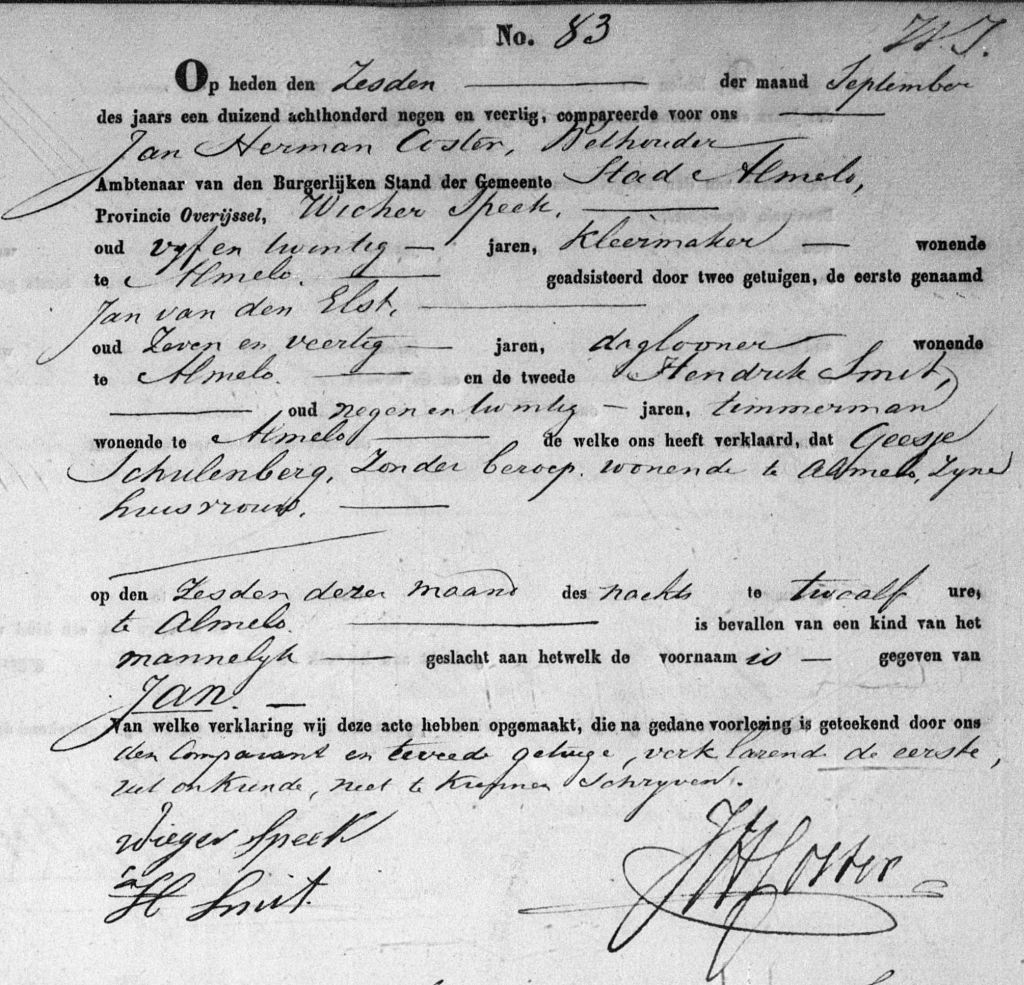 No. 83
Op heden den Zesden der maand September
des jaars een duizend achthonderd negen en veertig, compareerde voor ons
Jan Herman Coster, Wethouder
Ambtenaar van den Burgerlijken Stand der Gemeente Stad Almelo,
Provincie Overijssel, Wicher Speek,
oud vyf en twintig jaren, Kleermaker wonende
te Almelo. geadsisteerd door twee getuigen, de eerste genaamd
Jan van den Elst,
oud Zeven en veertig jaren, daglooner wonende
te Almelo. en de tweede Hendrik Smit,
oud negen en twintig jaren, timmerman
wonende te Almelo de welke ons heeft verklaard, dat Geesje
Schulenberg, Zonder beroep, wonende te Almelo, Zyne
huisvrouw,
op den Zesden dezer maand des nachts te twaalf ure,
te Almelo. is bevallen van een kind van het
mannelyk geslacht aan hetwelk de voornaam is gegeven van
Jan.
Van welke verklaring wij deze acte hebben opgemaakt, die na gedane voorlezing is geteekend door ons
den Comparant en tweede getuige, verklarend de eerste,
uit onkunde, niet te Kunnen Schryven.
Wieger Speek
H Smit. JHCoster